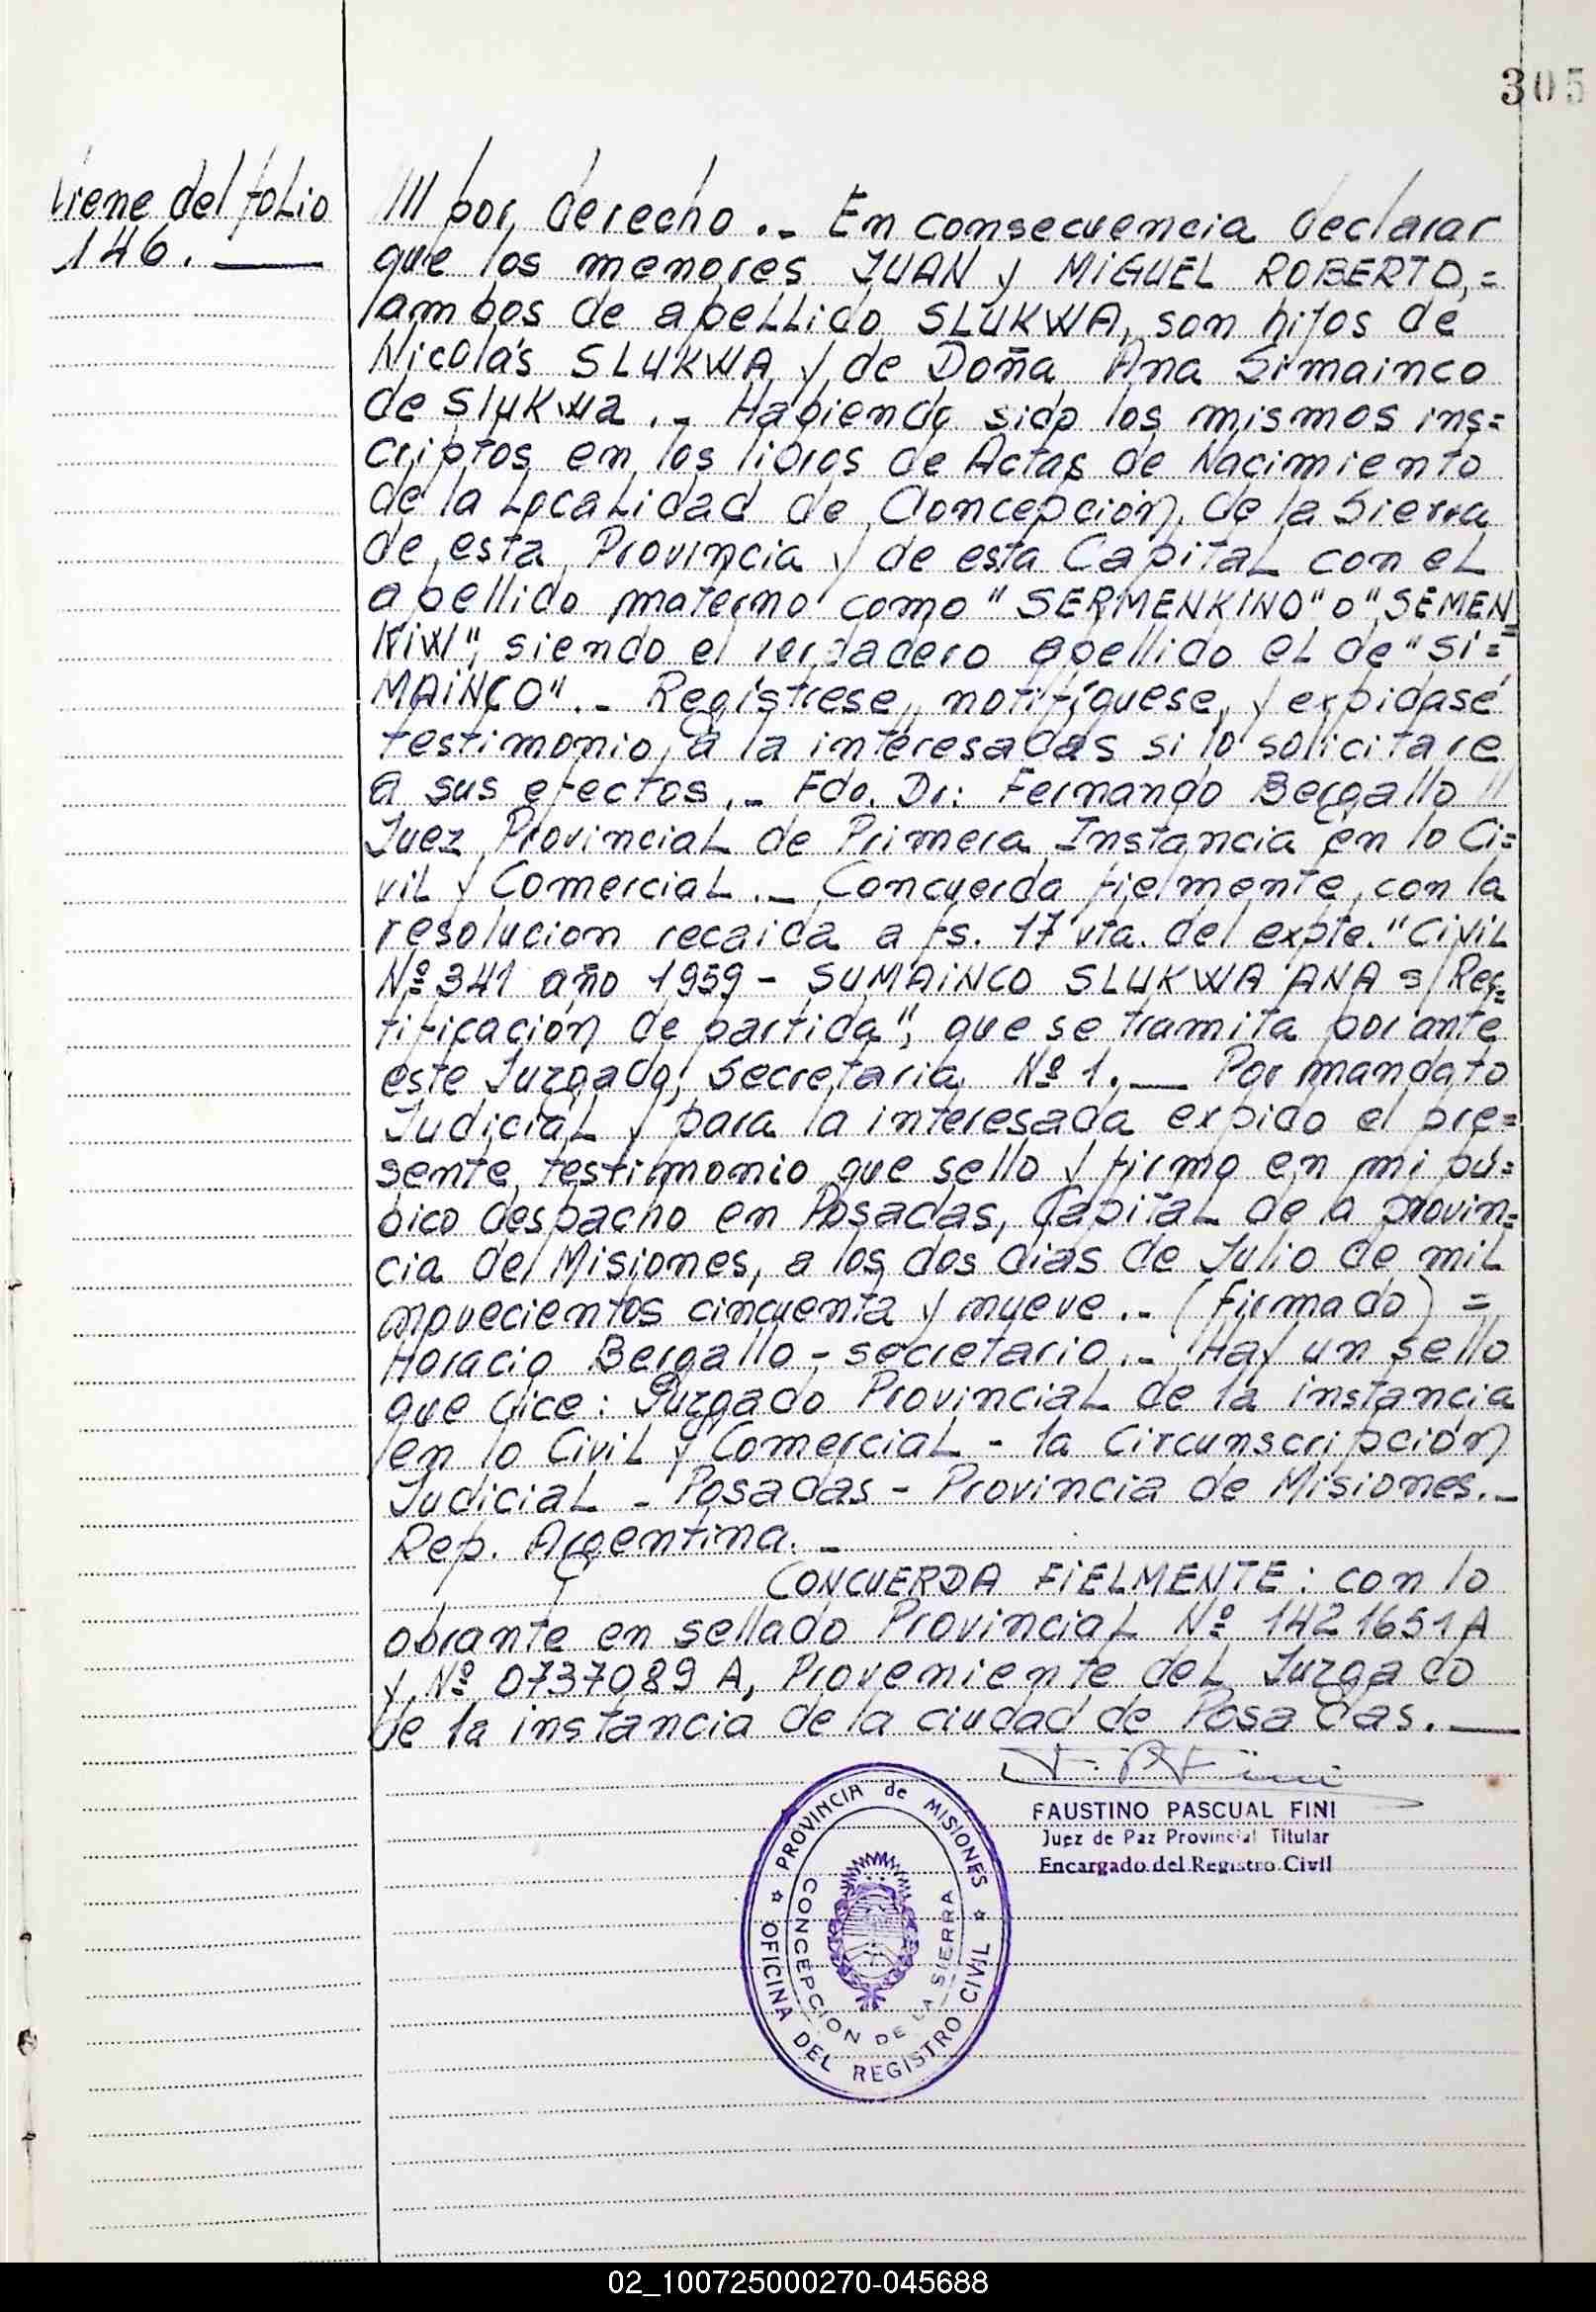 305
Viene del folio
146. ___
/// por derecho.- En consecuencia declarar
que los menores JUAN y MIGUEL ROBERTO,=
ambos de apellido SLUKWA, son hijos de
Nicolás SLUKWA y de Doña Ana Simainco
de Slukwa.- Habiendo sido los mismos ins=
criptos en los libros de Actas de Nacimiento
de la Localidad de Concepción de la Sierra
de esta Provincia y de esta Capital con el
apellido materno como "SERMENKINO" o "SEMEN=
KIW", siendo el verdadero apellido el de "SI=
MAINCO".- Regístrese, notifíquese, y expidasé
testimonio a la interesadas si lo solicitare
a sus efectos.- Fdo. Dr: Fernando Bergallo //
Juez Provincial de Primera Instancia en lo Ci=
vil y Comercial.- Concuerda fielmente con la
resolucion recaida a fs. 17 vta. del expte. "Civil
Nº 341 año 1959 - SUMAINCO SLUKWA ANA s/Rec=
tificación de partida", que se tramita por ante
este Juzgado, Secretaria Nº 1.__ Por mandato
Judicial y para la interesada expido el pre=
sente testimonio que sello y firmo en mi pú=
bico despacho en Posadas, Capital de la provin=
cia de Misiones, a los dos dias de Julio de mil
novecientos cincuenta y nueve.- (Firmado) =
Horacio Bergallo - secretario.- Hay un sello
que dice: Juzgado Provincial de 1a instancia
en lo Civil y Comercial - 1a Circunscripción
Judicial - Posadas - Provincia de Misiones.-
Rep. Argentina.-
CONCUERDA FIELMENTE: con lo
obrante en sellado Provincial Nº 1421651A
y Nº 0737089 A, Proveniente del Juzgado
de 1a instancia de la ciudad de Posadas.__
F. P. Fini
FAUSTINO PASCUAL FINI
Juez de Paz Provincial Titular
Encargado del Registro Civil
PROVINCIA de MISIONES
OFICINA DEL REGISTRO CIVIL
CONCEPCION DE LA SIERRA
02_100725000270-045688